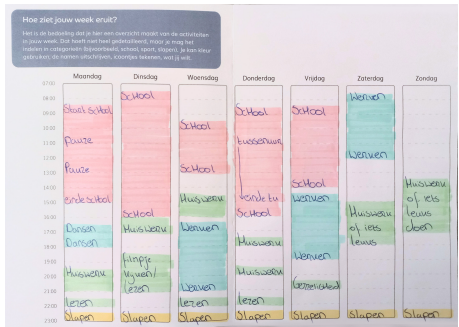 Hoe ziet jouw week eruit?
Het is de bedoeling dat je hier een overzicht maakt van de activiteiten
in jouw week. Dat hoeft niet heel gedetailleerd, maar je mag het
indelen in categorieën (bijvoorbeeld, school, sport, slapen). Je kan kleur
gebruiken, de namen inschrijven, icoontjes tekenen, wat jij wilt.
Maandag Dinsdag Woensdag Donderdag Vrijdag Zaterdag Zondag
07:00
08:00
09:00
10:00
11:00
12:00
13:00
14:00
15:00
16:00
17:00
18:00
19:00
20:00
21:00
22:00
23:00
Start school
Pauze
Pauze
einde school
Dansen
Dansen
Huiswerk
lezen
Slapen
School
School
Huiswerk
lezen
Slapen
School
School
Huiswerk
Werken
Werken
lezen
Slapen
School
tussenuur
School
Huiswerk
Huiswerk
lezen
Slapen
School
School
Werken
Werken
Gezelligheid
Slapen
Werken
Werken
Huiswerk
of iets
leuks
Slapen
Huiswerk
of iets
leuks
doen
Slapen